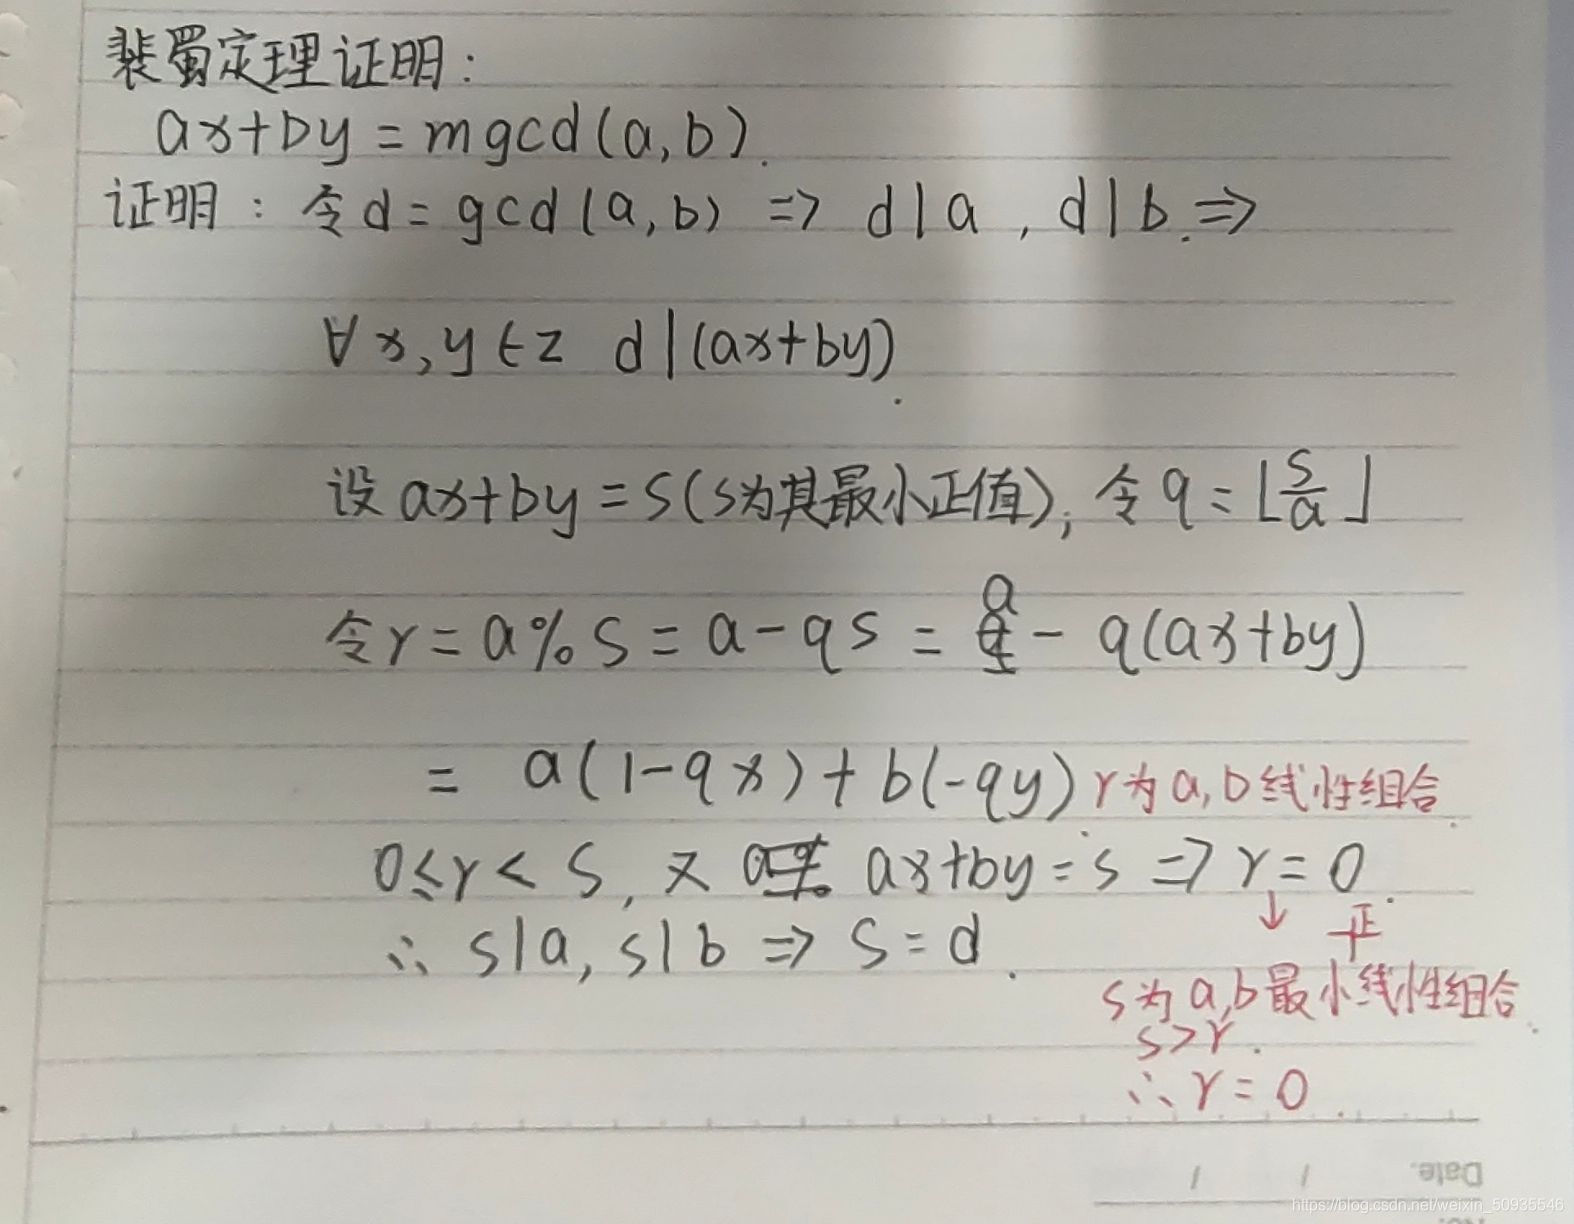 裴蜀定理证明:
ax+by = mgcd(a,b).
证明: 令d=gcd(a,b) => d|a , d|b. =>
∀x,y∈Z d|(ax+by).
设ax+by=s(s为其最小正值), 令q=⌊s/a⌋
令r=a%s=a-qs= a - q(ax+by)
= a(1-qx)+b(-qy) r为a,b线性组合.
0≤r<s, 又 ax+by=s => r=0.
↓ 正
∴ s|a, s|b => s=d.
s为a,b最小线性组合.
s>r.
∴ r=0.
Date.
https://blog.csdn.net/weixin_50935546